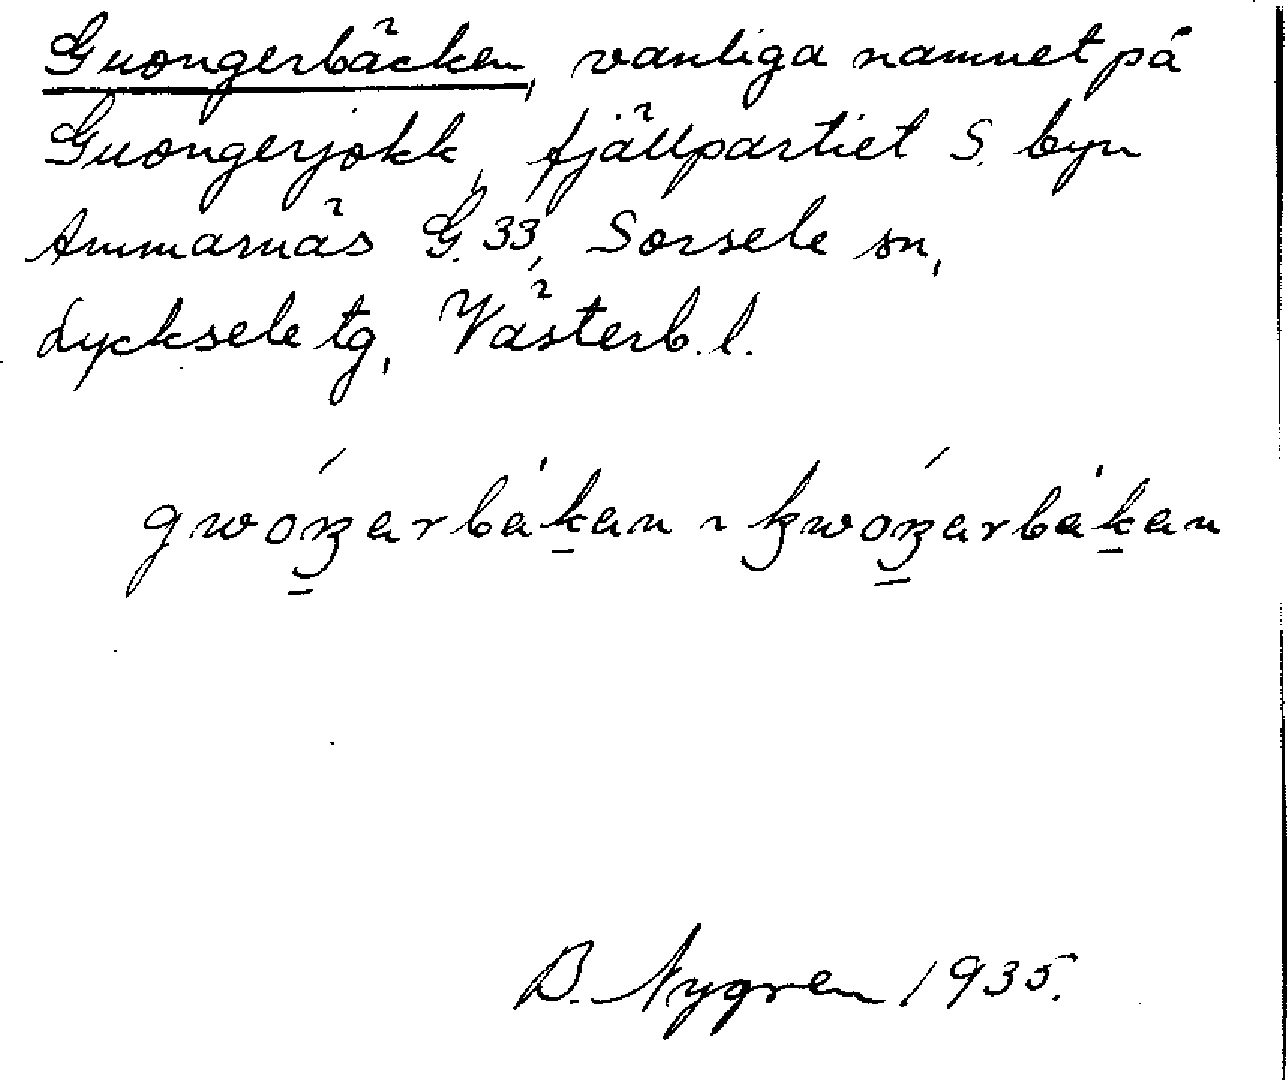 Guongerbäcken, vanliga namnet på
Guongerjokk, fjällpartiet S. byn
Ammarnäs G. 33, Sorsele sn,
Lycksele tg, Västerb. l.
B. Nygren 1935.